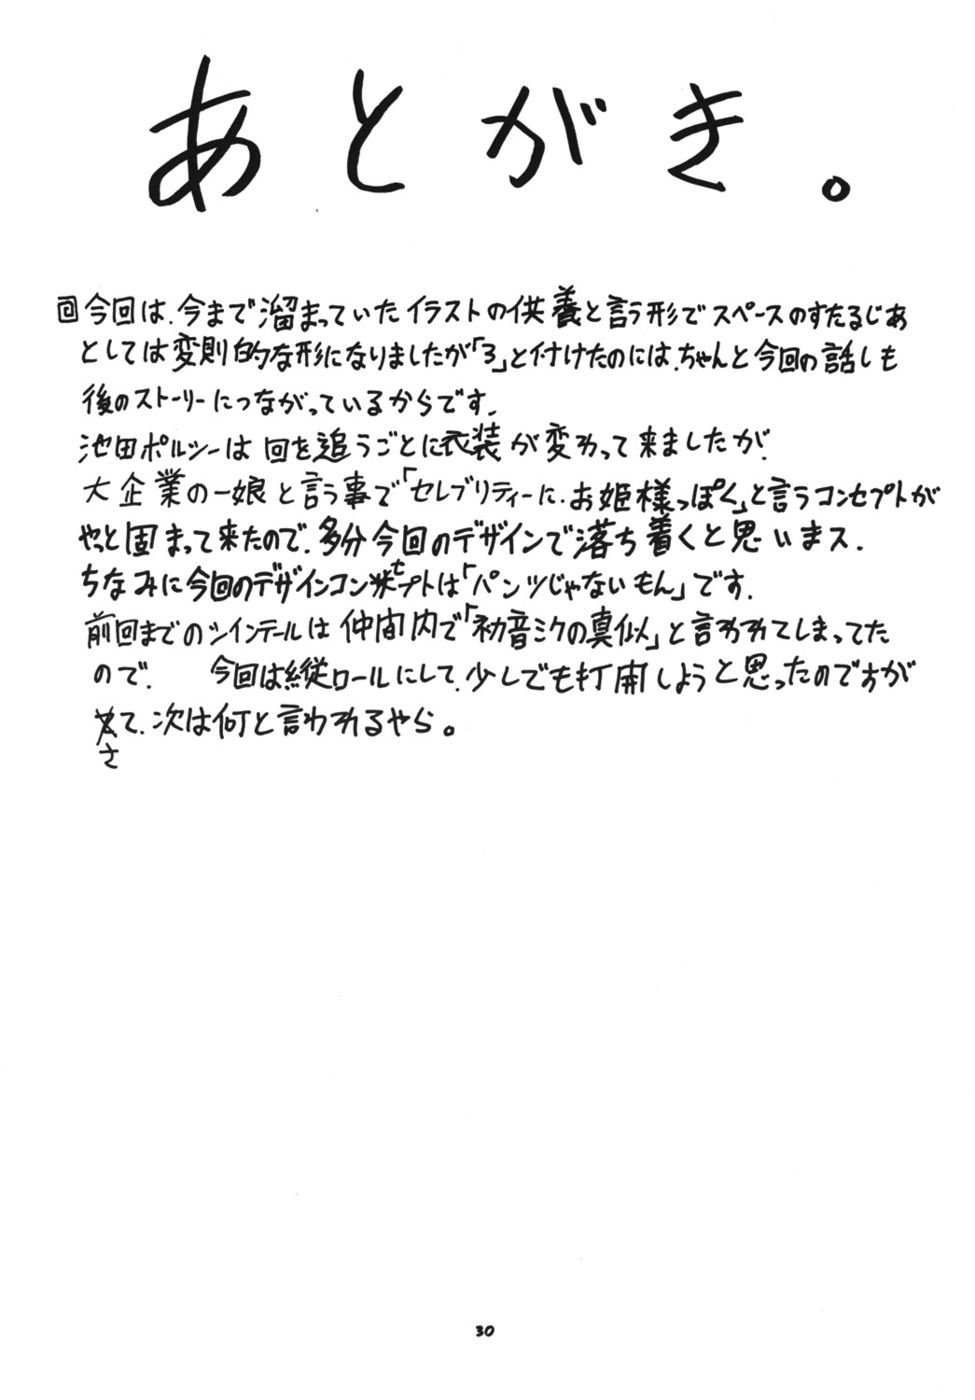 あとがき。
回今回は、今まで溜まっていたイラストの供養と言う形でスペースのすたるじあ
としては変則的な形になりましたが「3」と付けたのには、ちゃんと今回の話しも
後のストーリーにつながっているからです。
池田ポルシーは回を追うごとに衣装が変わって来ましたが、
大企業の一娘と言う事で「セレブリティーに、お姫様っぽく」と言うコンセプトが
やっと固まって来たので、多分今回のデザインで落ち着くと思いまス.
ちなみに今回のデザインコンセプトは「パンツじゃないもん」です.
前回までのツインテールは仲間内で「初音ミクの真似」と言われてしまってた
ので、今回は縦ロールにして、少しでも打開しようと思ったのですが
さて、次は何と言われるやら。
30